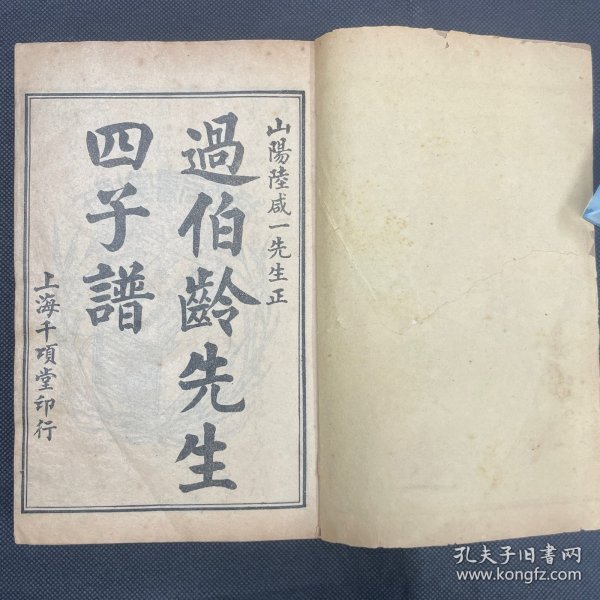 山陽陸咸一先生正
過伯齡先生
四子譜
上海千項堂印行
孔夫子旧书网
www.kongfz.com